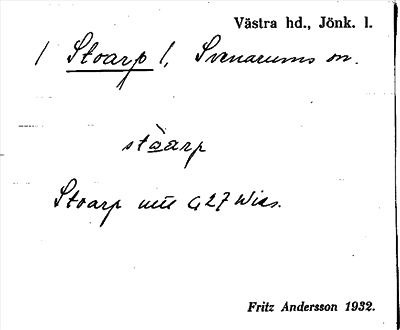 Västra hd., Jönk. l.
/ Stoarp /, Svenarums sn.
stàarp
Stoarp 27 Wies.
Fritz Andersson 1932.